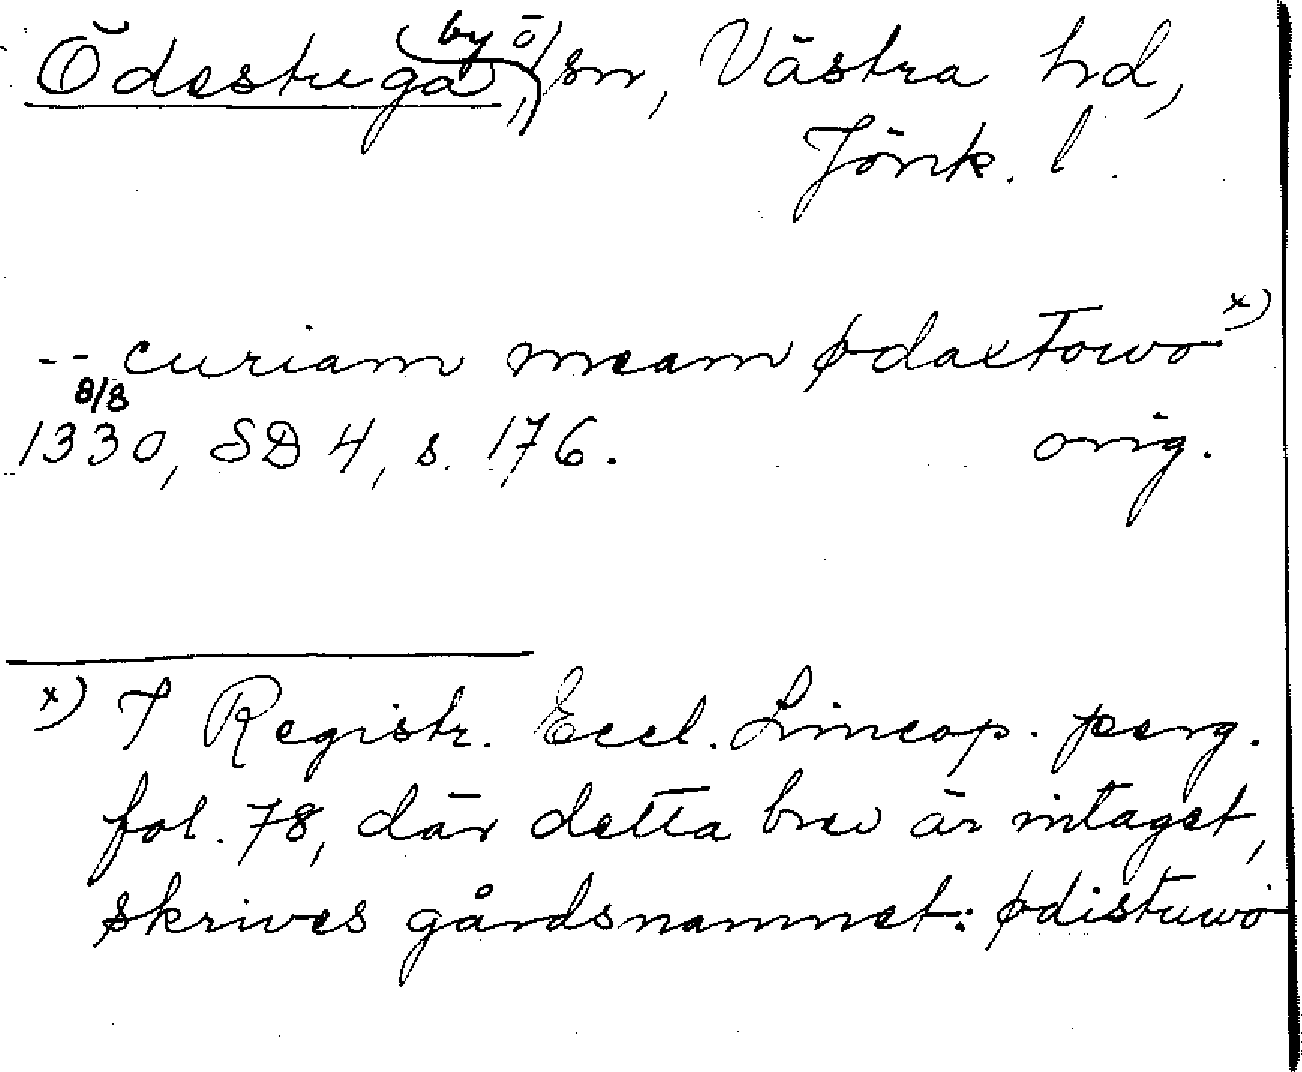 Ödestuga, by o. sn, Västra hd,
Jönk. l.
-- curiam meam ødaxstowo x)
8/8
1330, SD 4, s. 176. orig.
x) I Registr. Eccl. Lincop. perg.
fol. 78, där detta brev är intaget,
skrives gårdsnamnet: ødistuwo